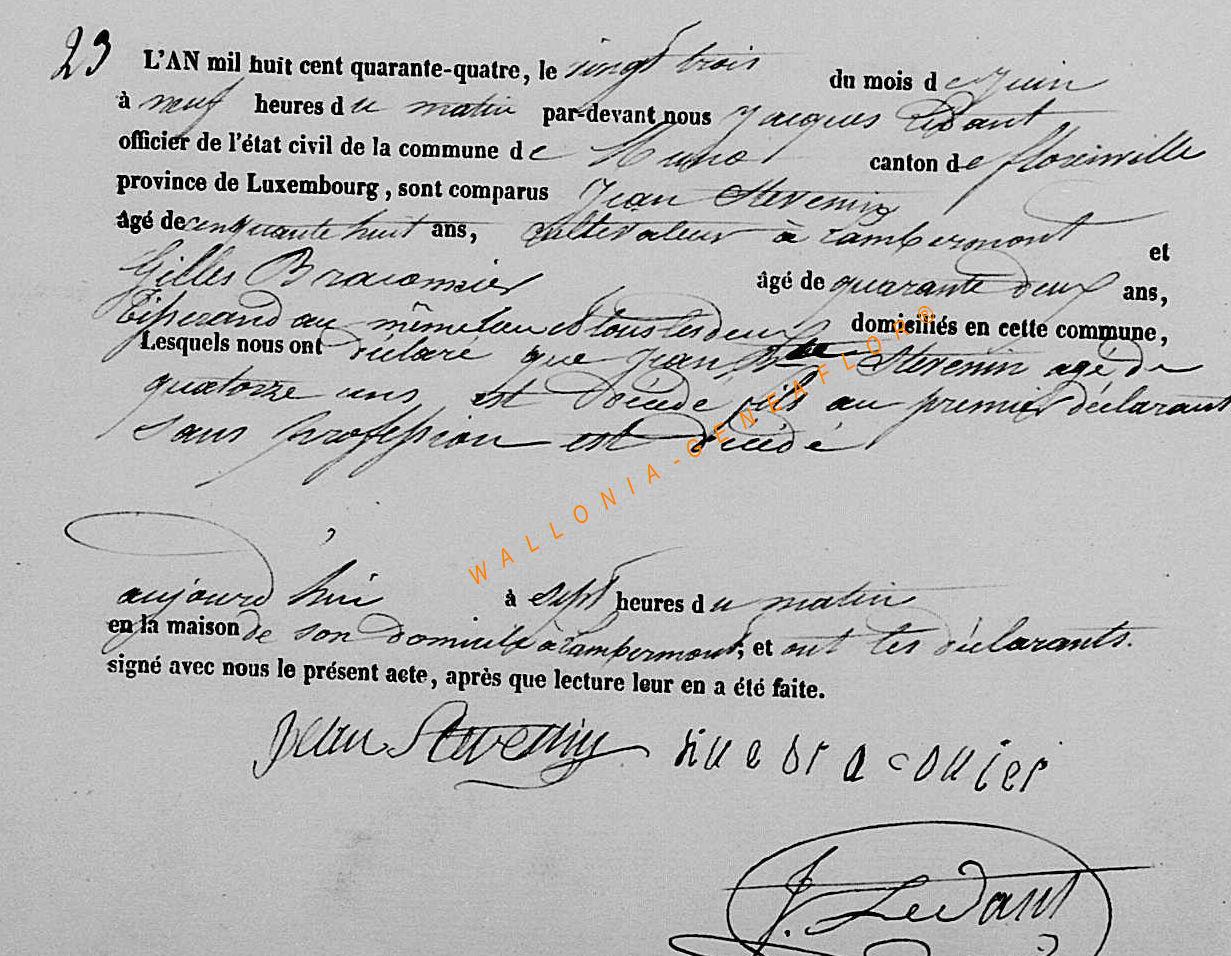 23
L'AN mil huit cent quarante-quatre, le vingt trois du mois de Juin
à neuf heures du matin par-devant nous Jacques Ledant
officier de l'état civil de la commune de Muno canton de florenville
province de Luxembourg, sont comparus Jean Stevenin
âgé de cinquante huit ans, cultivateur à Lambermont et
Gilles Braconnier âgé de quarante deux ans,
Tisserand au même lieu et tous les deux domiciliés en cette commune,
Lesquels nous ont déclaré que Jean Bte Stevenin agé de
quatorze ans est décédé, fils au premier déclarant
sans profession est décédé
aujourd'hui à sept heures du matin
en la maison de son domicile à Lambermont, et ont les déclarants.
signé avec nous le présent acte, après que lecture leur en a été faite.
Jean Stevenin braconier
J. Ledant
WALLONIA-GENEAFLOR®